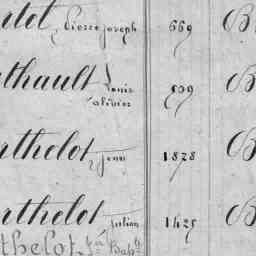 rtot Pierre Joseph 669 B
rthault Louis 809 B
olivier
rthelot Jean 1878 B
rthelot Julien 1425 B
thelot, J.n Bap.te